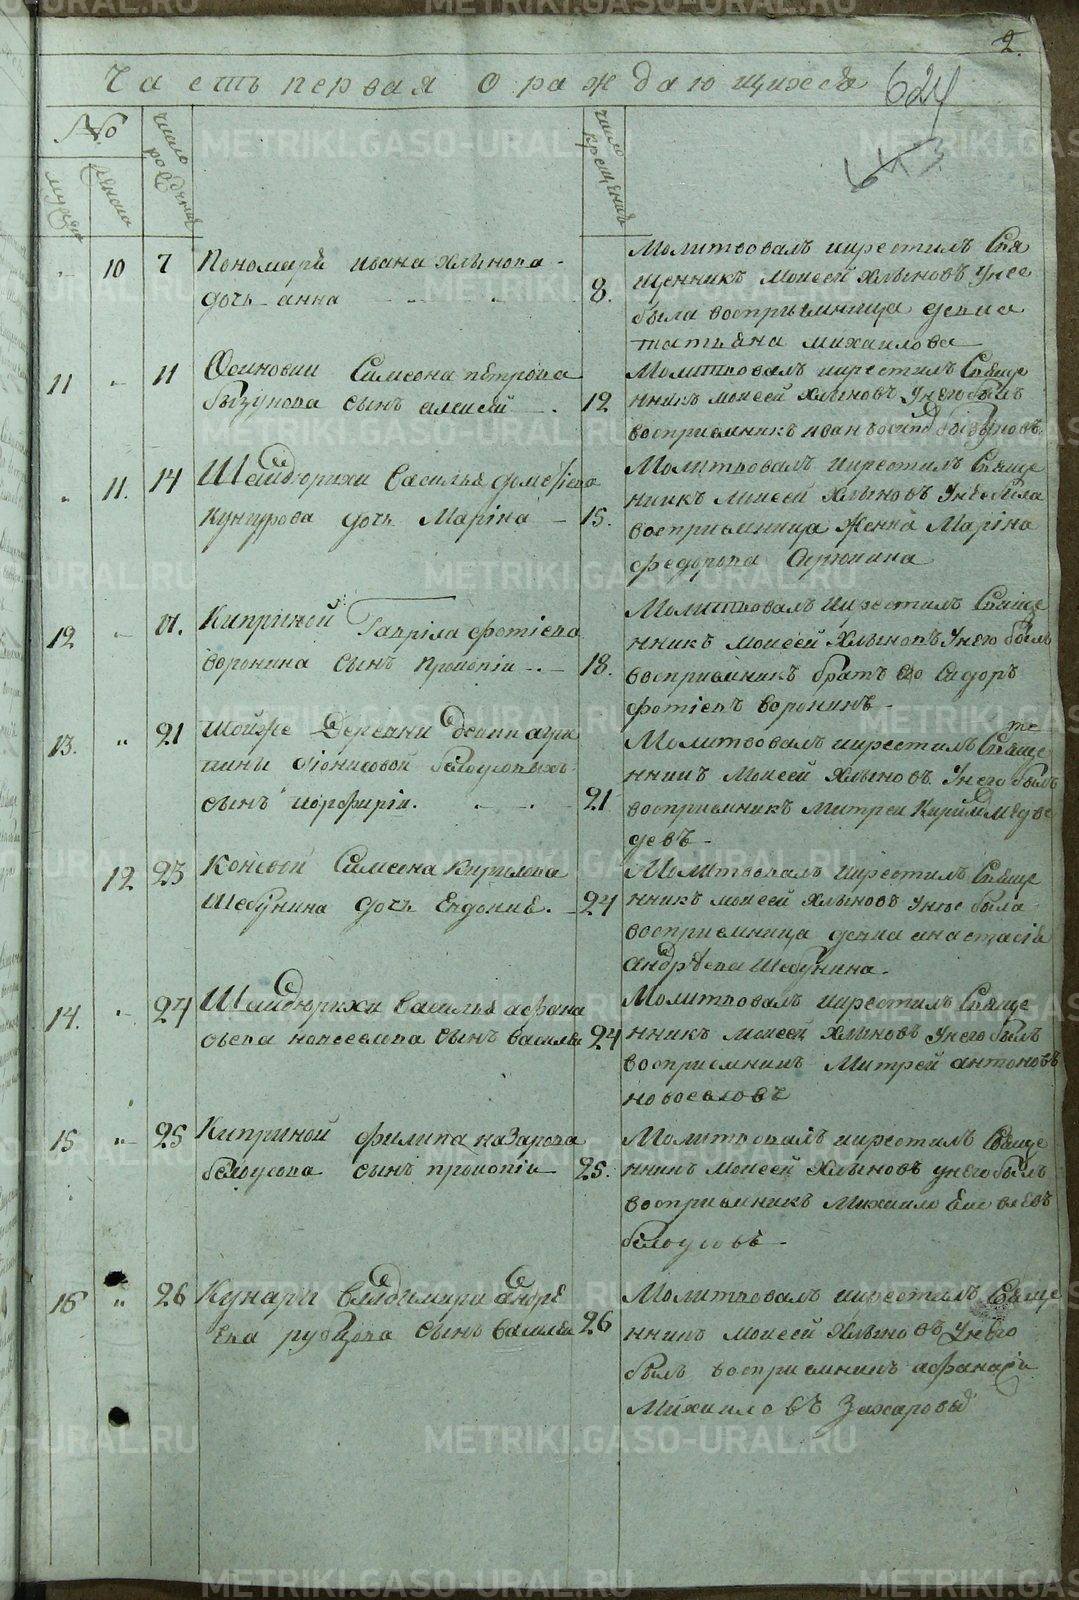 2.
Часть первая о раждающихся
624
643
№
мужеска
женска
число рожденія
число крещенія
10 7 Пономаря ивана Хлынова
дочь анна
8.
Молитвовалъ икрестилъ Свя
щенникъ Моисей Хлыновъ Унее
была восприемница девка
татьяна михаилова
11 11 Осиновки Симеона петрова
бызунова сынъ алексей
12
Молитвовалъ икрестилъ Свяще
нникъ моисей Хлыновъ Унего былъ
восприемникъ иванъ бызуновъ
11. 14 Шайдурихи Василья
Кунгурова дочь Марина
15.
Молитвовалъ икрестилъ Свяще
нникъ Моисей Хлыновъ Унее была
восприемница женка Марина
федорова
12 17. Киприной Гаврила фотіева
воронина сынъ прокопіи
18.
Молитвовалъ икрестилъ Свяще
нникъ моисей Хлыновъ Унего былъ
восприемникъ братъ его Сидоръ
фотіевъ воронинъ
13. 21 Тойже деревни
Діонисовой белоусовыхъ
сынъ порфирій.
21
Молитвовалъ икрестилъ Свяще
нникъ Моисей Хлыновъ. Унего былъ
восприемникъ Митреи Кирил медве
девъ
12 23 Коневой Симеона Кирилова
Шебунина дочь Евдокия.
24
Молитвовалъ икрестилъ Свяще
нникъ моисей Хлыновъ Унее была
восприемница девка анастасія
андрѣева Шебунина
14. 24 Шайдурихи Василья афана
сьева новоселова сынъ василей
24
Молитвовалъ икрестилъ Свяще
нникъ моисей Хлыновъ Унего былъ
восприемникъ Митрей антоновъ
новоселовъ
15 25 Киприной филипа назарова
белоусова сынъ прокопіи
25.
Молитвовалъ икрестилъ Свяще
нникъ моисей Хлыновъ унего былъ
восприемникъ Михаило
белоусовъ
16 26 Кунары Владимира андрѣ
ева рубцова сынъ василеи
26
Молитвовалъ икрестилъ Свяще
нникъ моисей Хлыновъ Унего
былъ восприемникъ афанасіи
Михаиловъ Захаровыхъ
METRIKI.GASO-URAL.RU